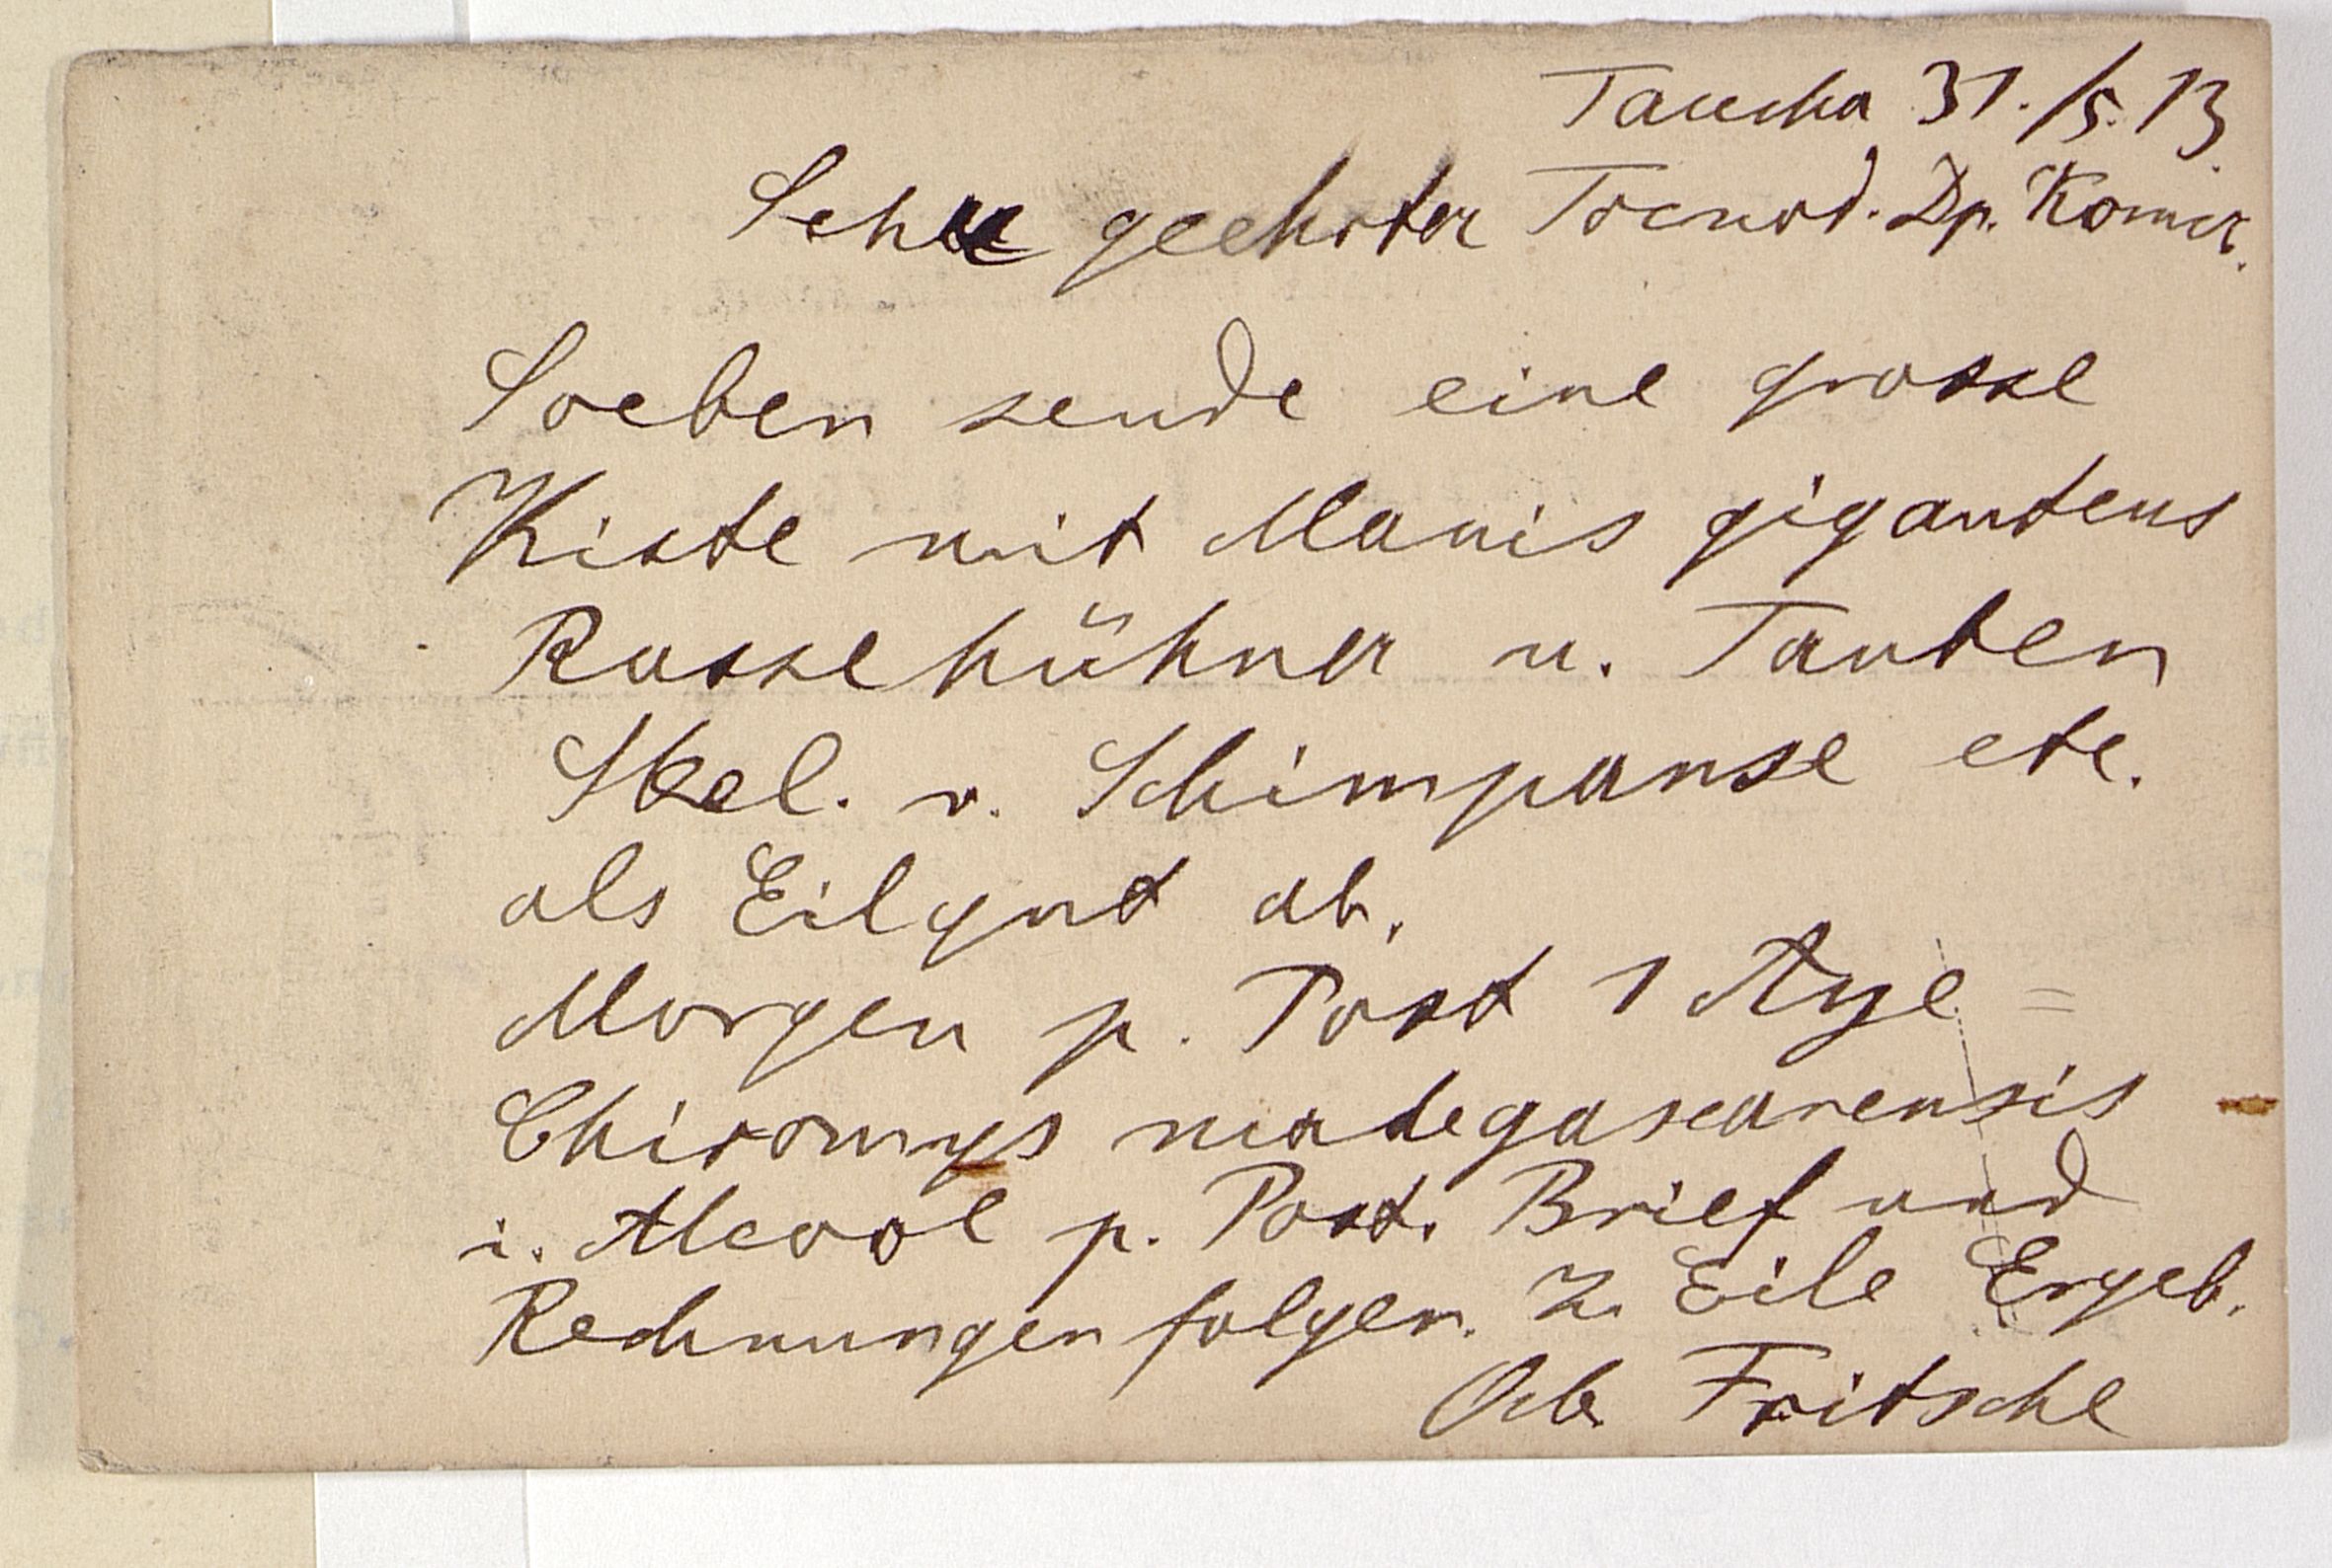 Taucha 31./5. 13
Sehr geehrter Dr.
Soeben sende eine grosse
Kiste mit Manis giganteus
Rassehühner u. Tauben
Skel. v. Schimpanse etc.
als Eilgut ab.
Morgen p. Post 1 Aye =
Chiromys madegascarensis
i. Alcool p. Post. Brief und
Rechnungen folgen. I. Eile Ergeb.
Fritsche